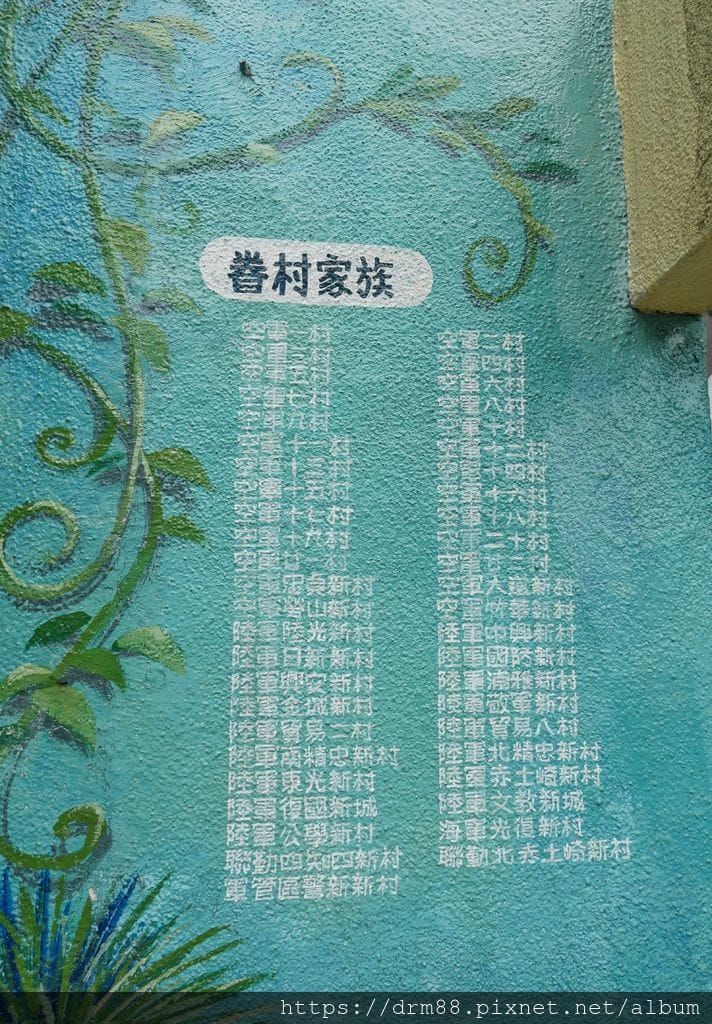 眷村家族
空軍一村
空軍三村
空軍五村
空軍七村
空軍九村
空軍十一村
空軍十三村
空軍十五村
空軍十七村
空軍十九村
空軍廿一村
空軍忠貞新村
空軍勞山新村
陸軍陸光新村
陸軍日新新村
陸軍興安新村
陸軍金城新村
陸軍貿易二村
陸軍南精忠新村
陸軍東光新村
陸軍復國新城
陸軍公學新村
聯勤四知四新村
軍管區警新新村
空軍二村
空軍四村
空軍六村
空軍八村
空軍十村
空軍十二村
空軍十四村
空軍十六村
空軍十八村
空軍二十村
空軍廿二村
空軍新村
空軍竹華新村
陸軍中興新村
陸軍國防新村
陸軍浦雅新村
陸軍敬軍新村
陸軍貿易八村
陸軍北精忠新村
陸軍赤土崎新村
陸軍文教新城
海軍光復新村
聯勤北赤土崎新村
https://drm88.pixnet.net/album